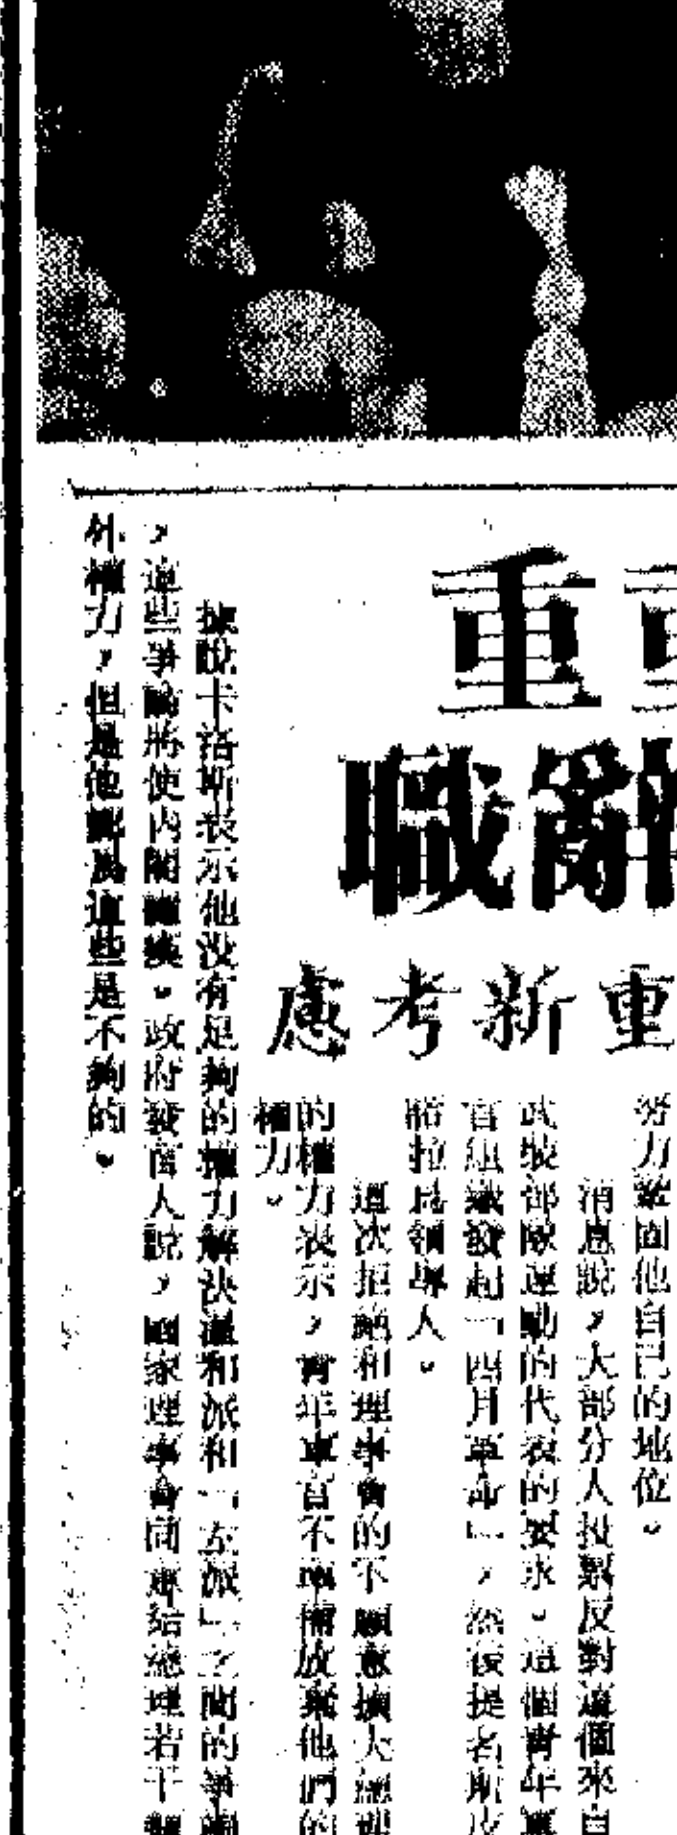 重
辭職
重新考慮
努力鞏固他自己的地位。
消息說，大部分人投票反對這個來自
武裝部隊運動的代表的要求。這個青年軍
官組織發起「四月革命」，然後提名斯皮
諾拉為領導人。
這次拒絕和理事會的不願意擴大總理
的權力表示，青年軍官不準備放棄他們的
權力。
據說卡洛斯表示他沒有足夠的權力解決溫和派和「左派」之間的爭論
，這些爭論將使內閣癱瘓。政府發言人說，國家理事會同意給總理若干額
外權力，但是他認為這些是不夠的。